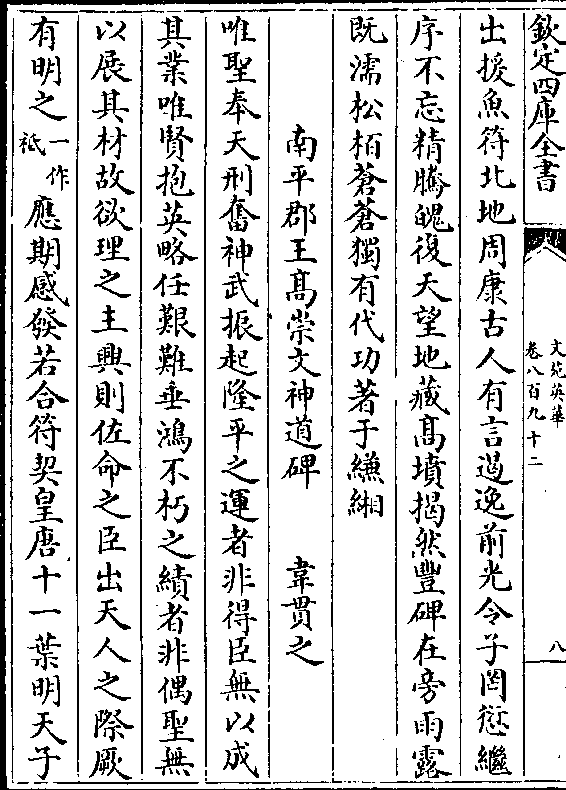 欽定四庫全書
文苑英華
卷八百九十二
八
出援魚符北地周康古人有言遏逸前光令子罔愆繼
序不忘精騰魄復天望地藏髙墳揭然豐碑在旁雨露
既濡松栢蒼蒼獨有代功著于縑緗
南平郡王髙崇文神道碑 韋貫之
唯聖奉天刑奮神武振起隆平之運者非得臣無以成
其業唯賢抱英略任艱難垂鴻不朽之績者非偶聖無
以展其材故欲理之主興則佐命之臣出天人之際厥
有明之一作祗應期感發若合符契皇唐十一葉明天子